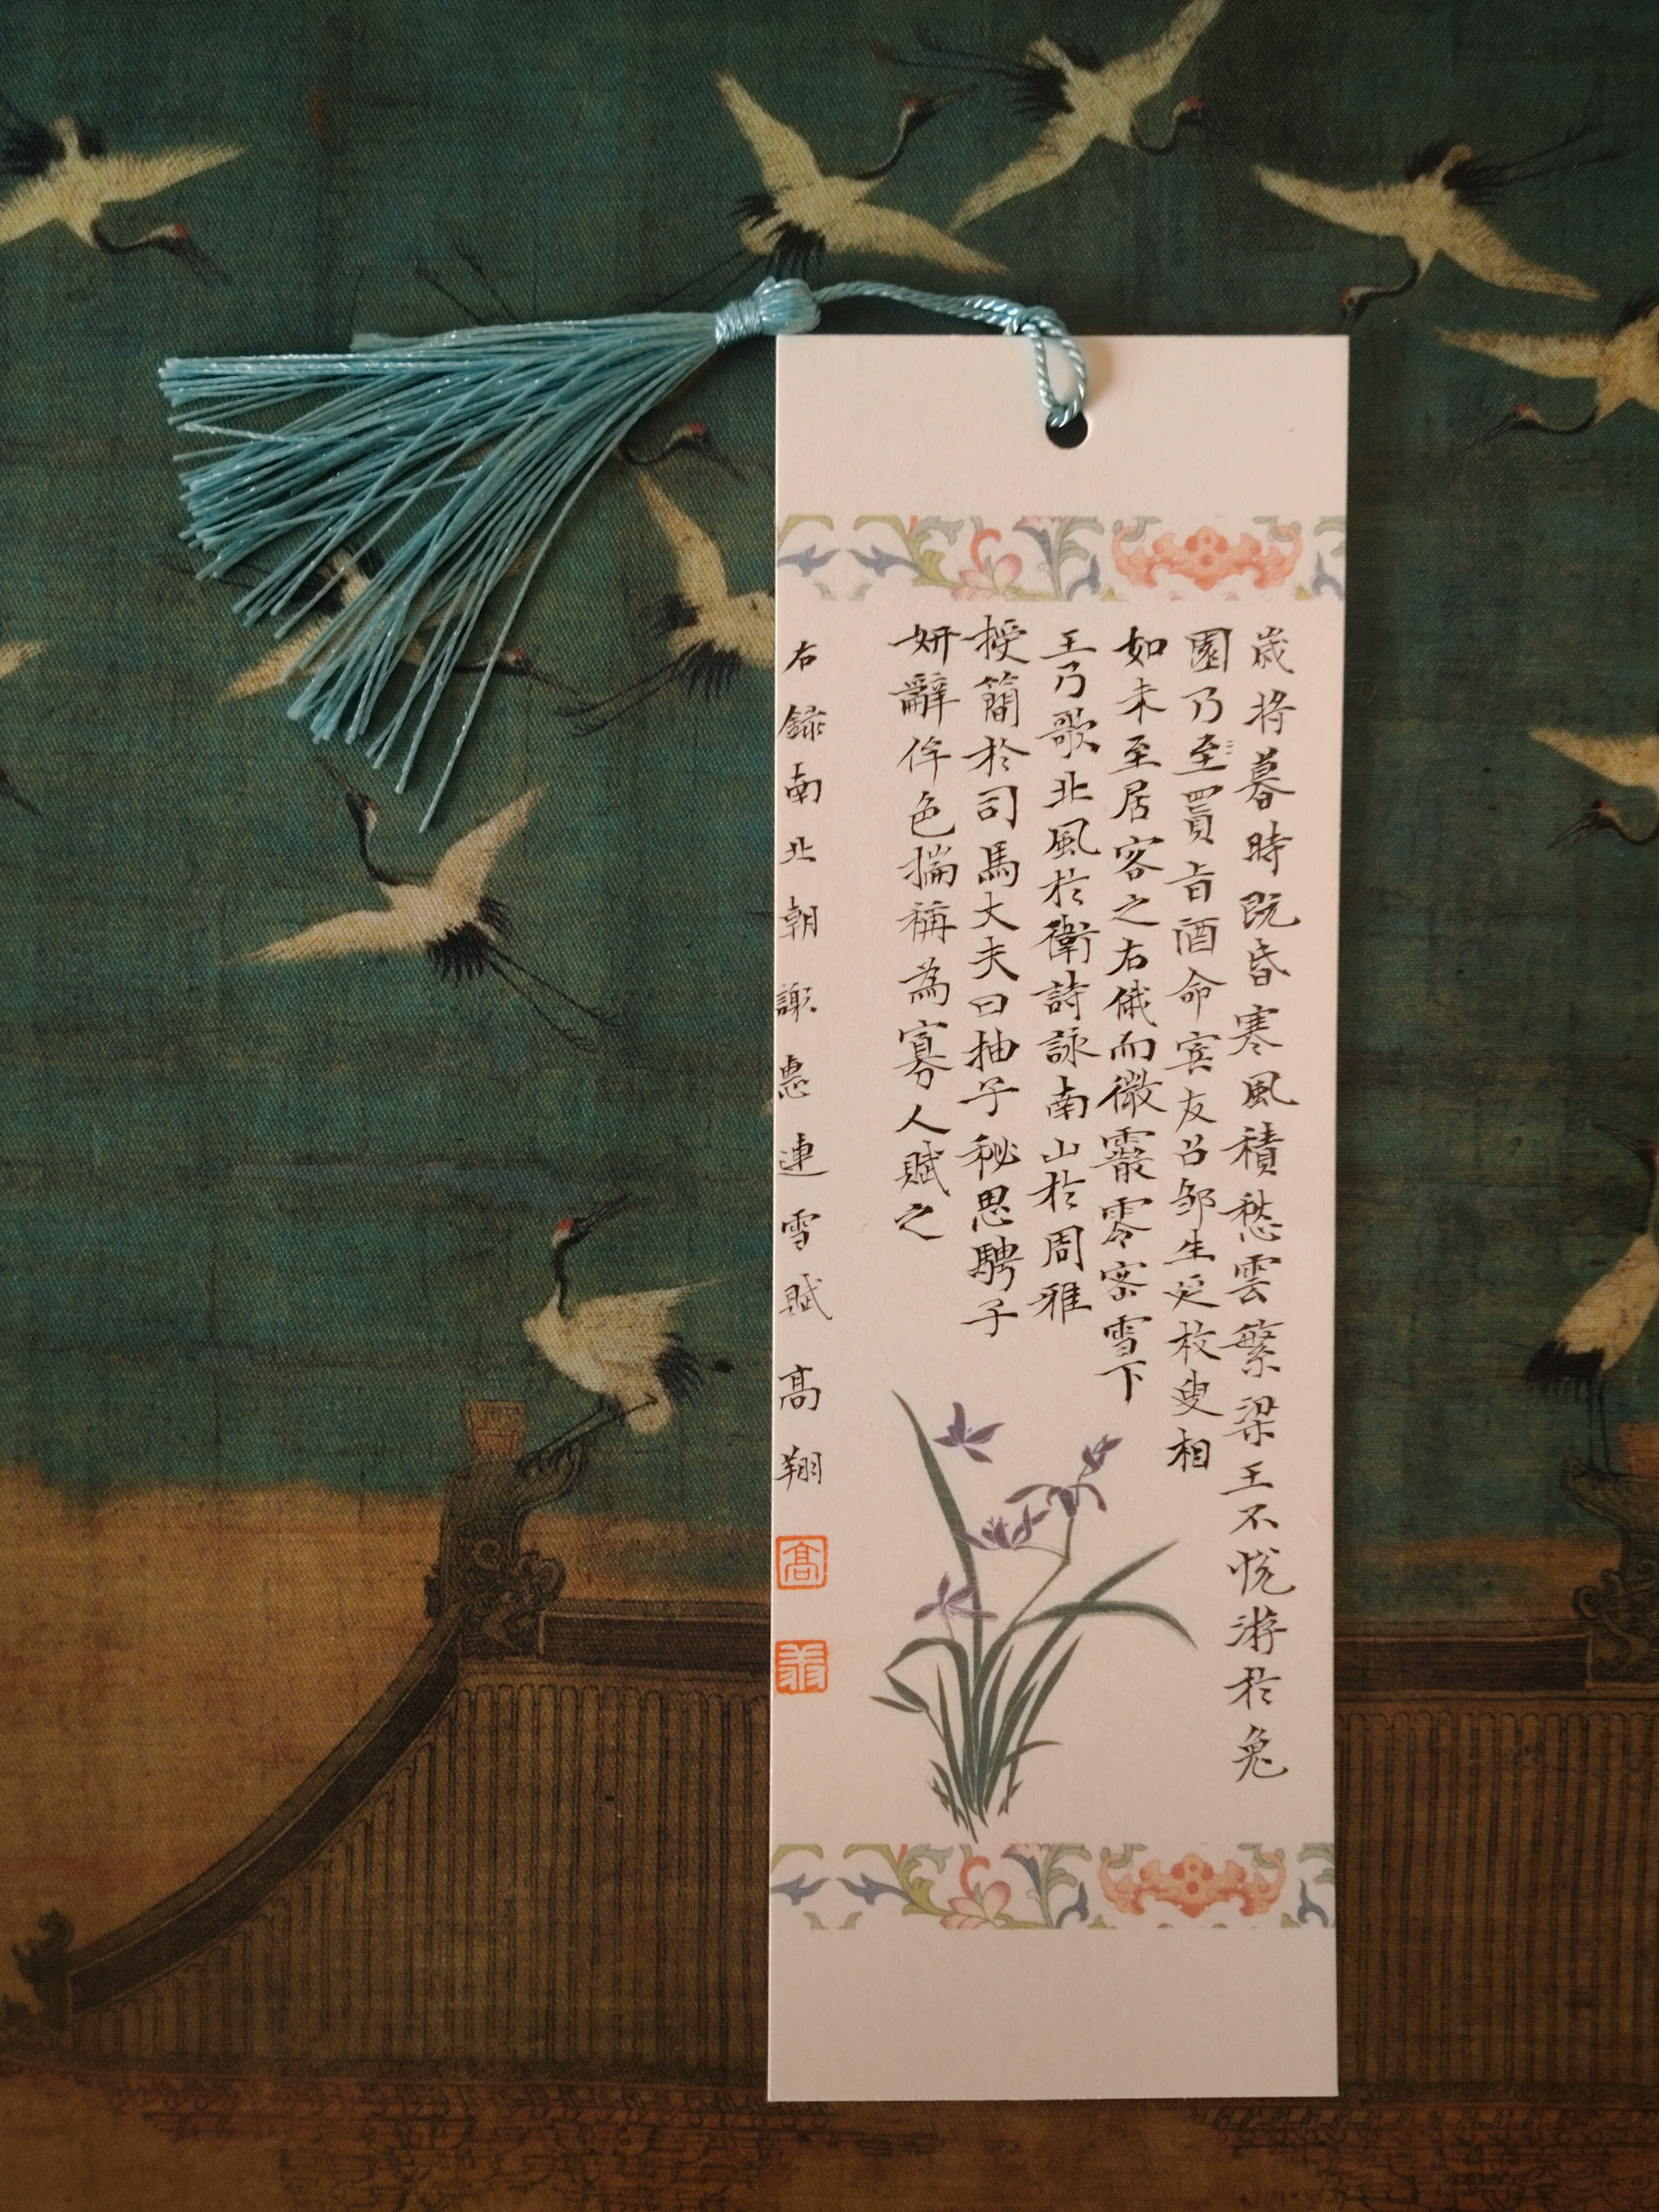 歲將暮時既昏寒風積愁雲繁梁王不悅游於兔
園乃至置旨酒命宾友召邹生延枚叟相
如末至居客之右俄而微霰零密雪下
王乃歌北風於衛詩詠南山於周雅
授簡於司馬大夫曰抽子秘思騁子
妍辭侔色揣稱為寡人賦之
右録南北朝謝惠連雪賦高翔
高
翔